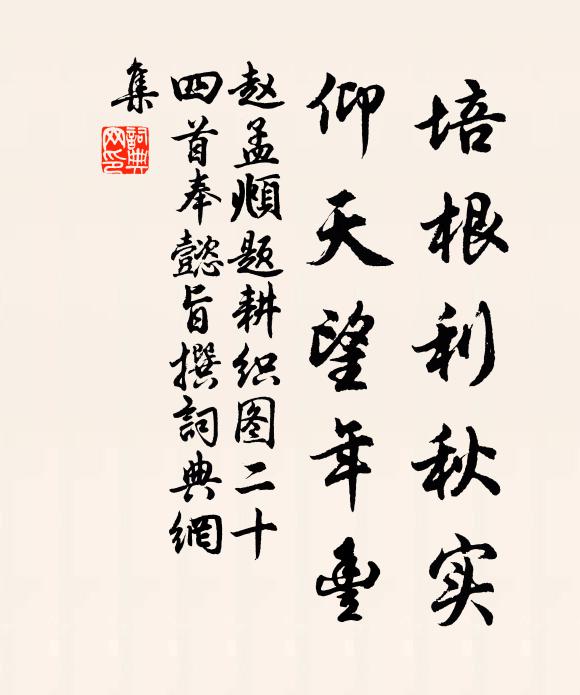 培根利秋实
仰天望年豊
赵孟頫题耕织图二十
四首奉懿旨撰詞典網
集
詞典
网印